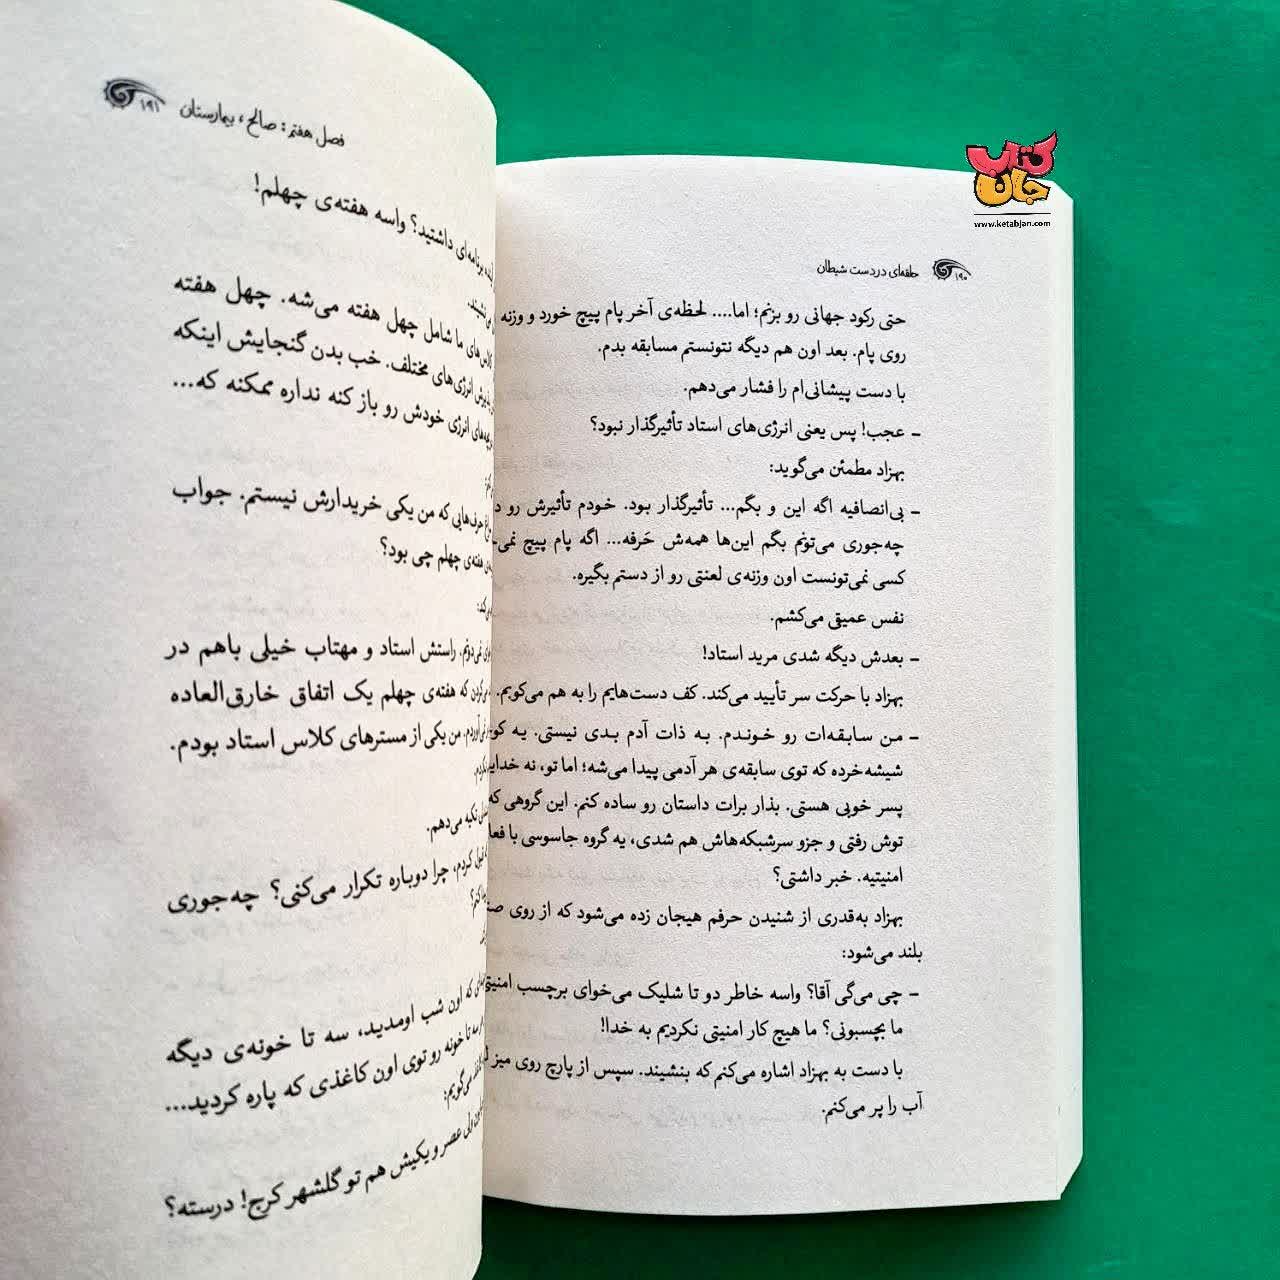 حلقه‌ای در دست شیطان
۱۹۰
حتی رکود جهانی رو بزنم؛ اما.... لحظه‌ی آخر پام پیچ خورد و وزنه
روی پام. بعد اون هم دیگه نتونستم مسابقه بدم.
با دست پیشانی‌ام را فشار می‌دهم.
- عجب! پس یعنی انرژی‌های استاد تأثیرگذار نبود؟
بهزاد مطمئن می‌گوید:
- بی‌انصافیه اگه این و بگم... تأثیرگذار بود. خودم تأثیرش رو
چه‌جوری می‌تونم بگم این‌ها همه‌ش حَرفه... اگه پام پیچ
کسی نمی‌تونست اون وزنه‌ی لعنتی رو از دستم بگیره.
نفس عمیق می‌کشم.
- بعدش دیگه شدی مرید استاد!
بهزاد با حرکت سر تأیید می‌کند. کف دست‌هایم را به هم می‌کوبم.
- من سابقه‌ات رو خوندم. به ذات آدم بدی نیستی. یه
شیشه‌خرده که توی سابقه‌ی هر آدمی پیدا می‌شه؛ اما تو، نه
پسر خوبی هستی. بذار برات داستان رو ساده کنم. این گروهی که
توش رفتی و جزو سرشبکه‌هاش هم شدی، یه گروه جاسوسی با
امنیتیه. خبر داشتی؟
بهزاد به‌قدری از شنیدن حرفم هیجان زده می‌شود که از روی
بلند می‌شود:
- چی می‌گی آقا؟ واسه خاطر دو تا شلیک می‌خوای برچسب
ما بچسبونی؟ ما هیچ کار امنیتی نکردیم به خدا!
با دست به بهزاد اشاره می‌کنم که بنشیند. سپس از پارچ روی میز
آب را پر می‌کنم.
فصل هفتم: صالح، بیمارستان
۱۹۱
برنامه‌ای داشتید؟ واسه هفته‌ی چهلم!
می‌نشیند.
کلاس‌های ما شامل چهل هفته می‌شه. چهل هفته
انرژی‌های مختلف. خب بدن گنجایش اینکه
انرژی خودش رو باز کنه نداره ممکنه که...
حرف‌هایی که من یکی خریدارش نیستم. جواب
هفته‌ی چهلم چی بود؟
نمی‌دونم. راستش استاد و مهتاب خیلی باهم در
که هفته‌ی چهلم یک اتفاق خارق‌العاده
من یکی از مسترهای کلاس استاد بودم.
تکیه می‌دهم.
کردم، چرا دوباره تکرار می‌کنی؟ چه‌جوری
که اون شب اومدید، سه تا خونه‌ی دیگه
سه تا خونه رو توی اون کاغذی که پاره کردید...
می‌گویم:
ولی عصر و یکیش هم تو گلشهر کرج! درسته؟
کتاب جان
www.ketabjan.com